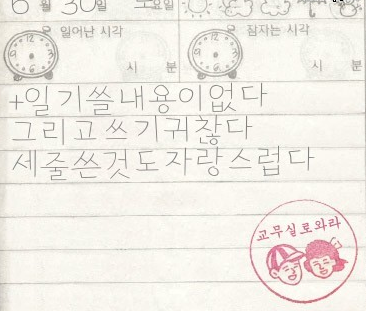 6 월 30일 토요일
일어난 시각 잠자는 시각
시 분 시 분
+일기쓸내용이없다
그리고쓰기귀찮다
세줄쓴것도자랑스럽다
교무실로와라